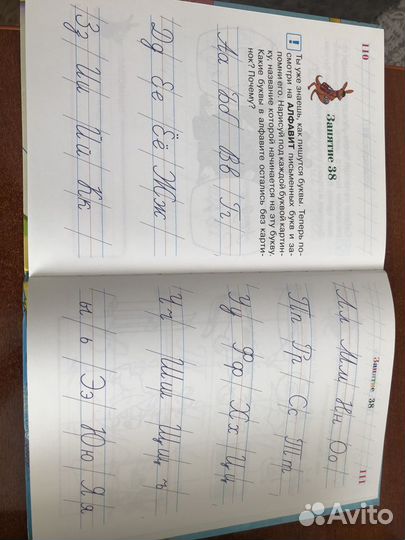 110
Занятие 38
Ты уже знаешь, как пишутся буквы. Теперь по-
смотри на АЛФАВИТ письменных букв и за-
помни его. Нарисуй под каждой буквой картин-
ку, название которой начинается на эту букву.
Какие буквы в алфавите остались без карти-
нок? Почему?
Аа Бб Вв Гг
Дд Ее Ёё Жж
Зз Ии Йй Кк
Занятие 38
111
Лл Мм Нн Оо
Пп Рр Сс Тт
Уу Фф Хх Цц
Чч Шш Щщ ъ
ы ь Ээ Юю Яя
Avito